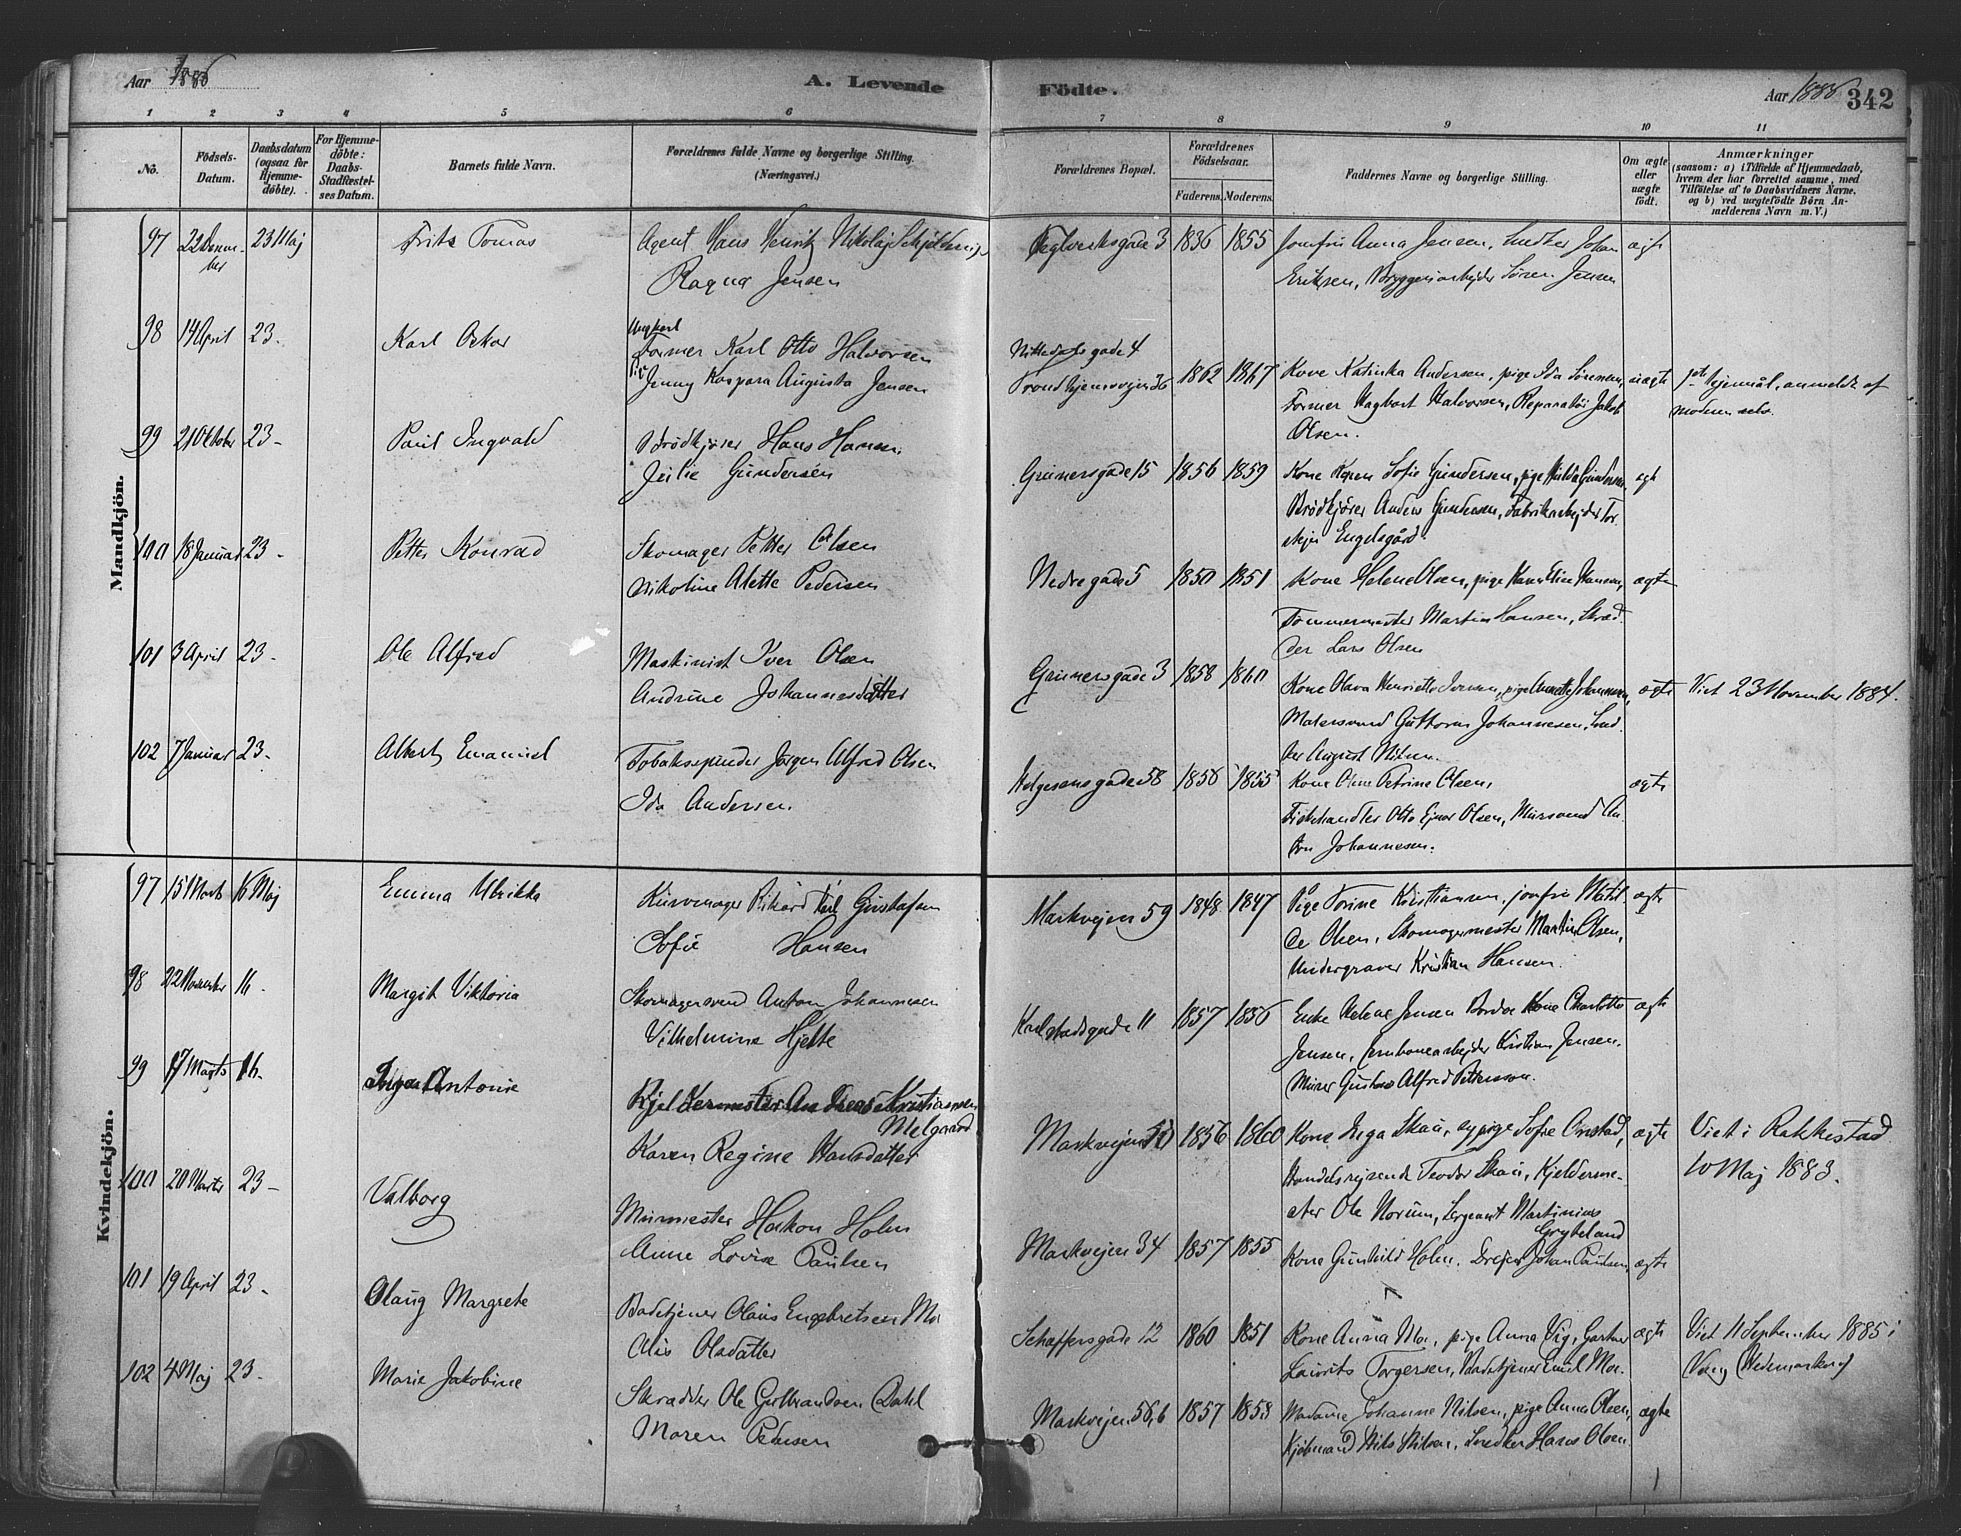 Aar 1886
A. Levende
Födte.
Aar 1886
342
1 2 3 4 5 6 7 8 9 10 11
No.
Födsels-
Datum.
Daabsdatum
(ogsaa for
Hjemme-
döbte).
For Hjemme-
döbte:
Daabs-
Stadfæstel-
ses Datum.
Barnets fulde Navn.
Forældrenes fulde Navne og borgerlige Stilling.
(Næringsvei.)
Forældrenes Bopæl.
Forældrenes
Födselsaar.
Faderens. Moderens.
Faddernes Navne og borgerlige Stilling.
Om ægte
eller
uægte
født.
Anmærkninger
(saasom: a) i Tilfælde af Hjemmedaab,
hvem der har forrettet samme, med
Tilföielse af to Daabsvidners Navne,
og b) ved uægtefödte Börn An-
melderens Navn m. V.)
Mandkjön.
97 22 23 Maj Frits Tomas Agent Hans Henrik Nikolaj
Ragna Jensen
Teglverksgade 3 1836 1855 Jomfru Anna Jensen, Snedker Johan
Eriksen, Bryggeriarbejder Sören Jensen
98 14 April 23. Karl Oskar Ungkarl
Former Karl Otto Halvorsen
Pige Jenny Kaspara Augusta Jensen
Nittedalsgade 4
Trondhjemsvejen 36 1862 1867 Kone Katinka Andersen, pige Ida Sörensen, uægte
Former Hagbart Halvorsen, Reparatör Jakob
Olsen.
anmeldt af
moderen selv.
99 21 Oktober 23 - Paul Ingvald Brödkjörer Hans Hansen
Gundersen
Grünersgade 15 1856 1859 Kone Karen Sofie Gundersen, pige Hulda Gundersen, ægte
Brödkjörer Anders Gundersen, Fabrikarbejder Tor-
Engelsgård.
100 18 Januar 23 - Petter Konrad Skomager Petter Olsen
Nikoline Alette Pedersen
Nedregade 5 1850 1851 Kone Helene Olsen, pige Elise Hansen, ægte
Tömmermester Martin Hansen, Skræd-
der Lars Olsen
101 3 April 23. Ole Alfred Maskinist Iver Olsen
Andrine Johannesdatter
Grünersgade 3 1858 1860 Kone Olava Henriette Iversen, pige Annette Johannesen, ægte Viet 23 November 1884.
Malersvend Guttorm Johannesen, Sned-
ker August Nilsen.
102 7 Januar 23. Albert Emanuel Tobaksspinder Jörgen Alfred Olsen
Ida Andersen.
Helgesensgade 58 1856 1855 Kone Petrine Olsen, ægte
Fiskhandler Otto Ejnar Olsen, Mursvend An-
ton Johannesen.
Kvindekjön.
97 15 Marts 16 Maj Emma Ulrikka Kurvmager Rikard Karl Gustafsen
Sofie Hansen
Markvejen 59 1848 1847 Pige Torine Kristiansen, jomfru Matil- ægte
de Olsen, Skomagermester Martin Olsen,
Undergraver Kristian Hansen.
98 22 November 16. Margit Viktoria Skomagersvend Anton Johannesen
Vilhelmine Hjelte
Karlstadsgade 11 1857 1856 Enke Helene Jensen Kone Charlotte ægte
Jensen, Jernbanearbejder Kristian Jensen.
Murer Gustav Alfred Pettersson.
99 17 Marts 16. Inga Antonie Kjeldermester Andreas Kristiansen
Melgaard
Karen Regine Hansdatter
Markvejen 1856 1860 Kone Inga Skau, sypige Sofie Onstad, ægte Viet i Rakkestad
10 Maj 1883.
Handelsrejsende Teodor Skau, Kjelderme-
ster Ole Norum, Sergeant Martinius
Grybeland
100 20 Marts 23 - Valborg Murmester Haakon Holm
Anne Lovise Paulsen
Markvejen 34 1857 1855 Kone Gunhild Holm. Drejer Johan Paulsen, ægte
101 19 April 23. Olaug Margrete Badetjener Olaus Engebretsen Mo
Olsdatter
Schaffersgade 12 1860 1851 Kone Anna Mo, pige Anna Vig, Gartner ægte Viet 11 September 1885 i
Laurits Torgersen, Badetjener Emil Mo. Vang Hedemarken
102 4 Maj 23. Marie Jakobine Skrædder Ole Gulbrandsen Dahl
Maren Pedersen
Markvejen 56,b 1857 1853 Madame Johanne Nilsen, pige Anna Olsen, ægte
Kjöbmand Nils Nilsen, Snedker Hans Olsen